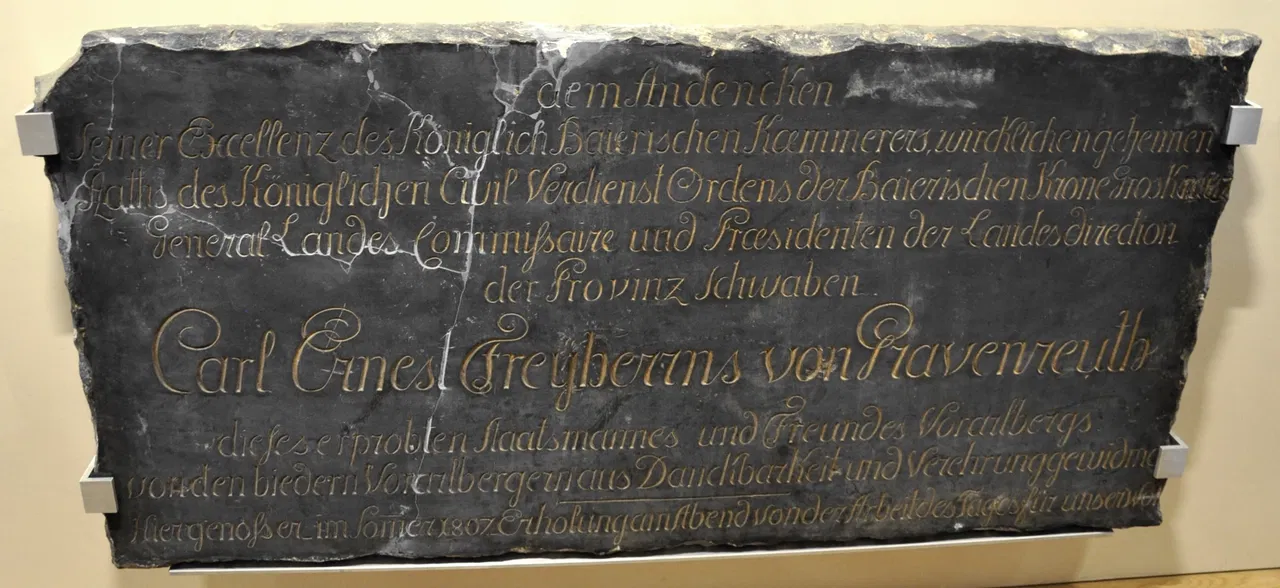 dem Andencken
Seiner Excellenz des Königlich Baierischen Kæmmerers, wircklichen geheimen
Raths des Königlichen Civil Verdienst Ordens der Baierischen Krone Gros Kreuz
General Landes Commissaire und Præsidenten der Landes direction
der Provinz Schwaben
Carl Ernest Freyherrns von Gravenreuth
dieses erprobten Staatsmannes und Freundes Vorarlbergs
von den biedern Vorarlbergern aus Danckbarkeit und Verehrung gewidme
Hier genosser im Somer 1807 Erholung am Abend von der Arbeit des Tages für unser wol